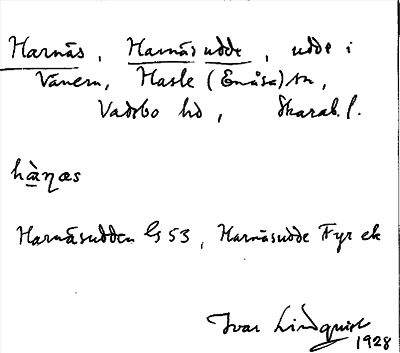 Harnäs, Harnäsudde, udde i
Vänern, Hasle (Enåsa) sn,
Vadsbo hd, Skarab. l.
hàŋæs
Harnäsudden G 53, Harnäsudde Fyr ek
Ivar Lindquist
1928